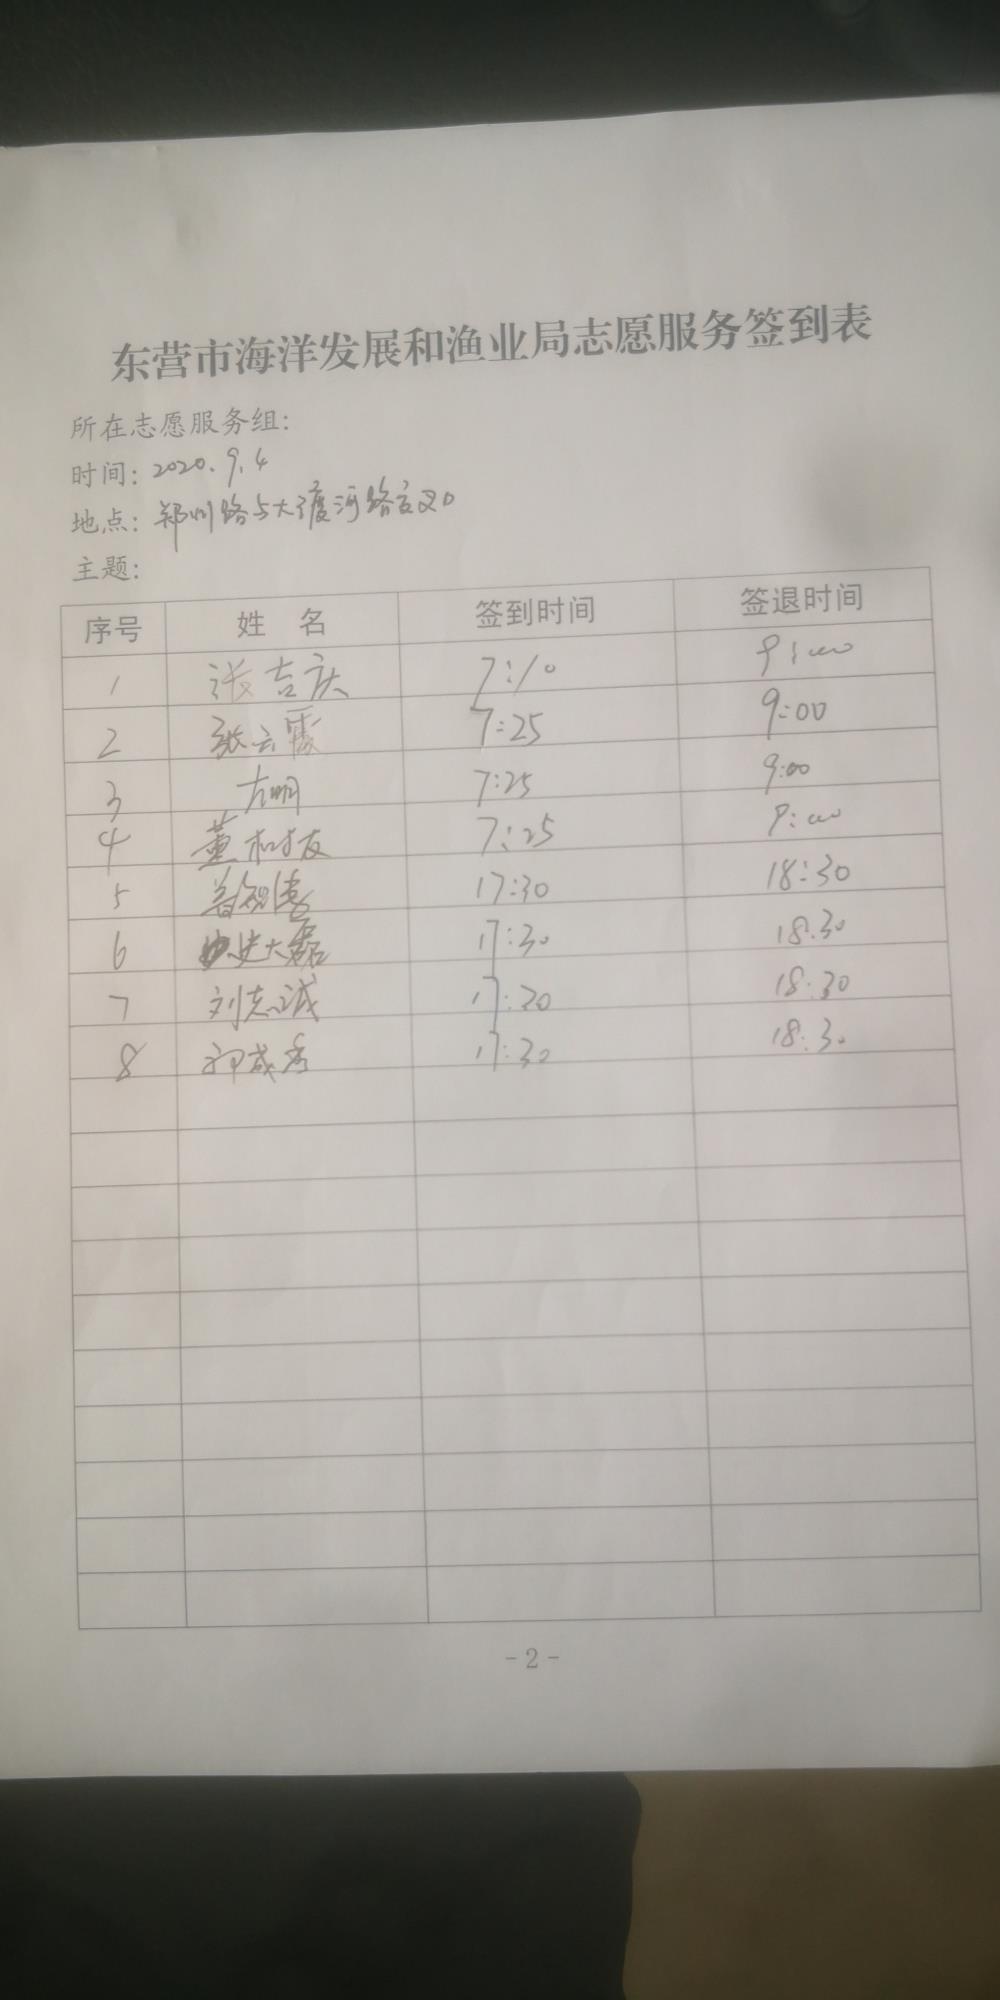 东营市海洋发展和渔业局志愿服务签到表
所在志愿服务组:
时间: 2020.9.4
地点: 郑州路与大渡河路交叉口
主题:
序号 姓 名 签到时间 签退时间
1 张吉庆 7:10 9:00
2 张云霞 7:25 9:00
3 7:25 9:00
4 董树友 7:25 9:00
5 17:30 18:30
6 史大磊 17:30 18.30
7 刘志诚 17:30 18:30
8 17:30 18:30
- 2 -